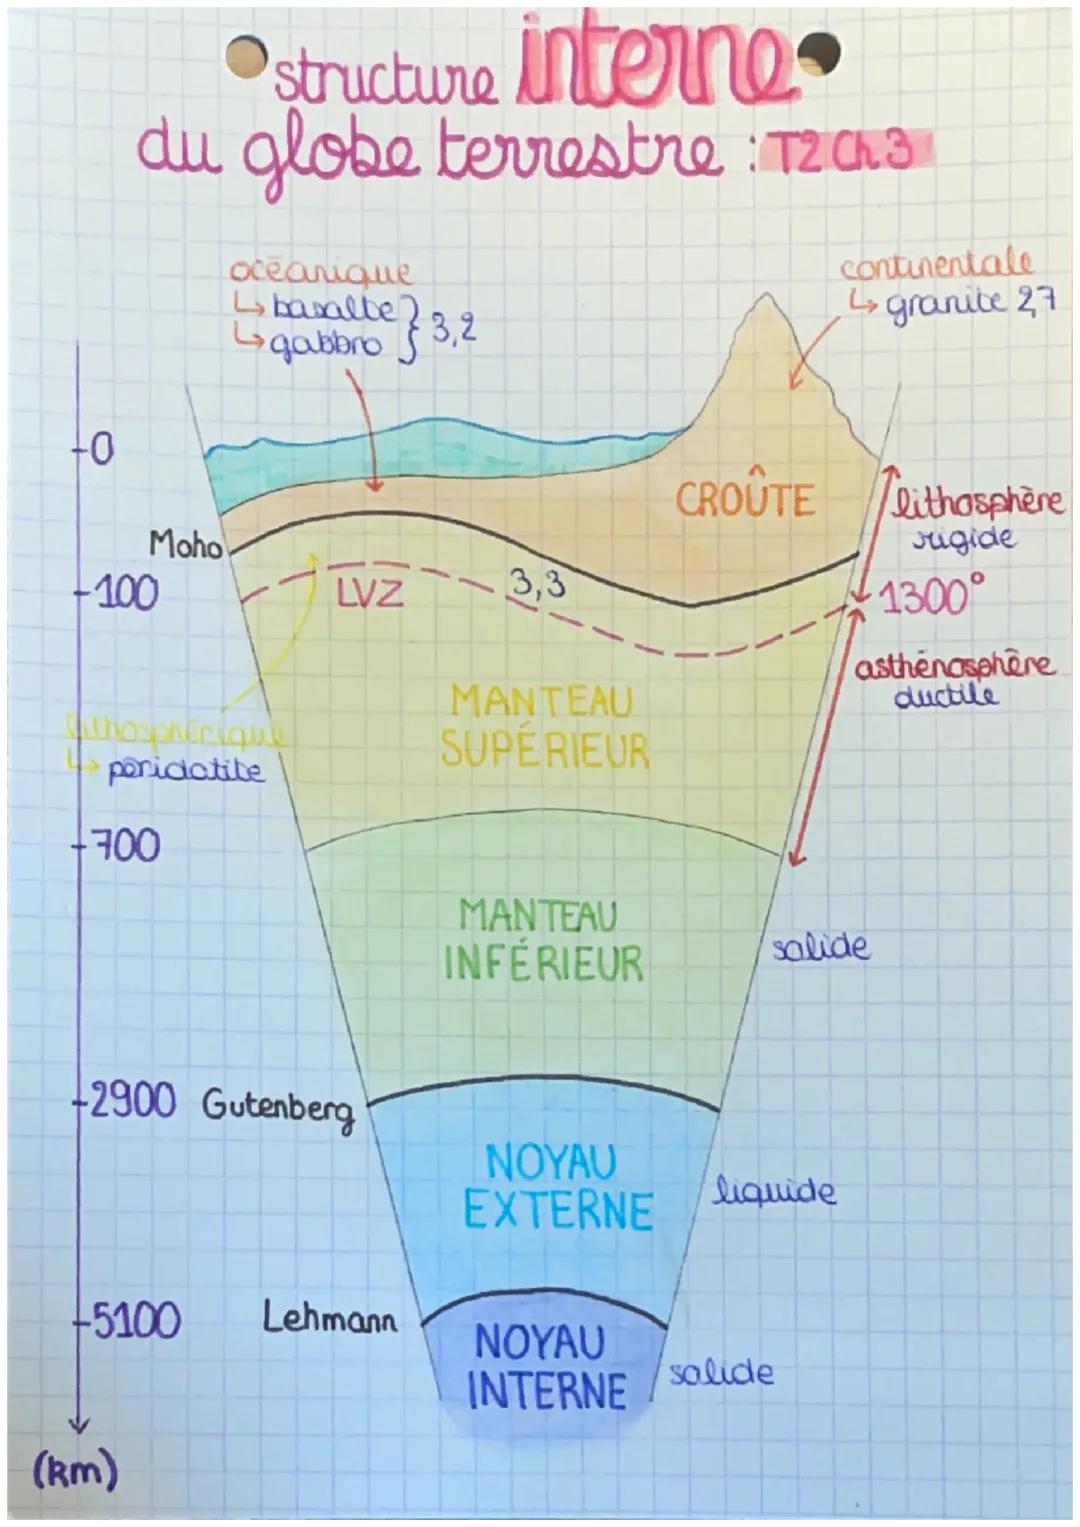 structure interne
du globe terrestre : T2 Ch 3
océanique
↳ basalte } 3,2
↳ gabbro
continentale
↳ granite 2,7
0
CROÛTE
lithosphère
rigide
Moho
100
LVZ
3,3
1300°
asthénosphère
ductile
MANTEAU
SUPÉRIEUR
lithosphérique
↳ péridotite
700
MANTEAU
INFÉRIEUR
solide
2900 Gutenberg
NOYAU
EXTERNE
liquide
5100 Lehmann
NOYAU
INTERNE
solide
(km)